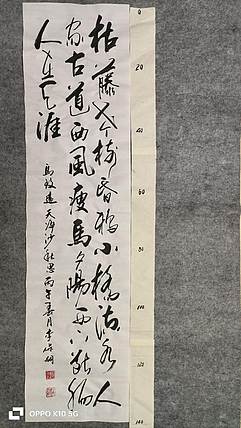 枯藤老树昏鸦小橋流水人
家古道西風瘦馬夕陽西下断腸
人在天涯
馬致遠天净沙秋思丙午春月李
0
20
40
60
80
100
120
140
OPPO K10 5G